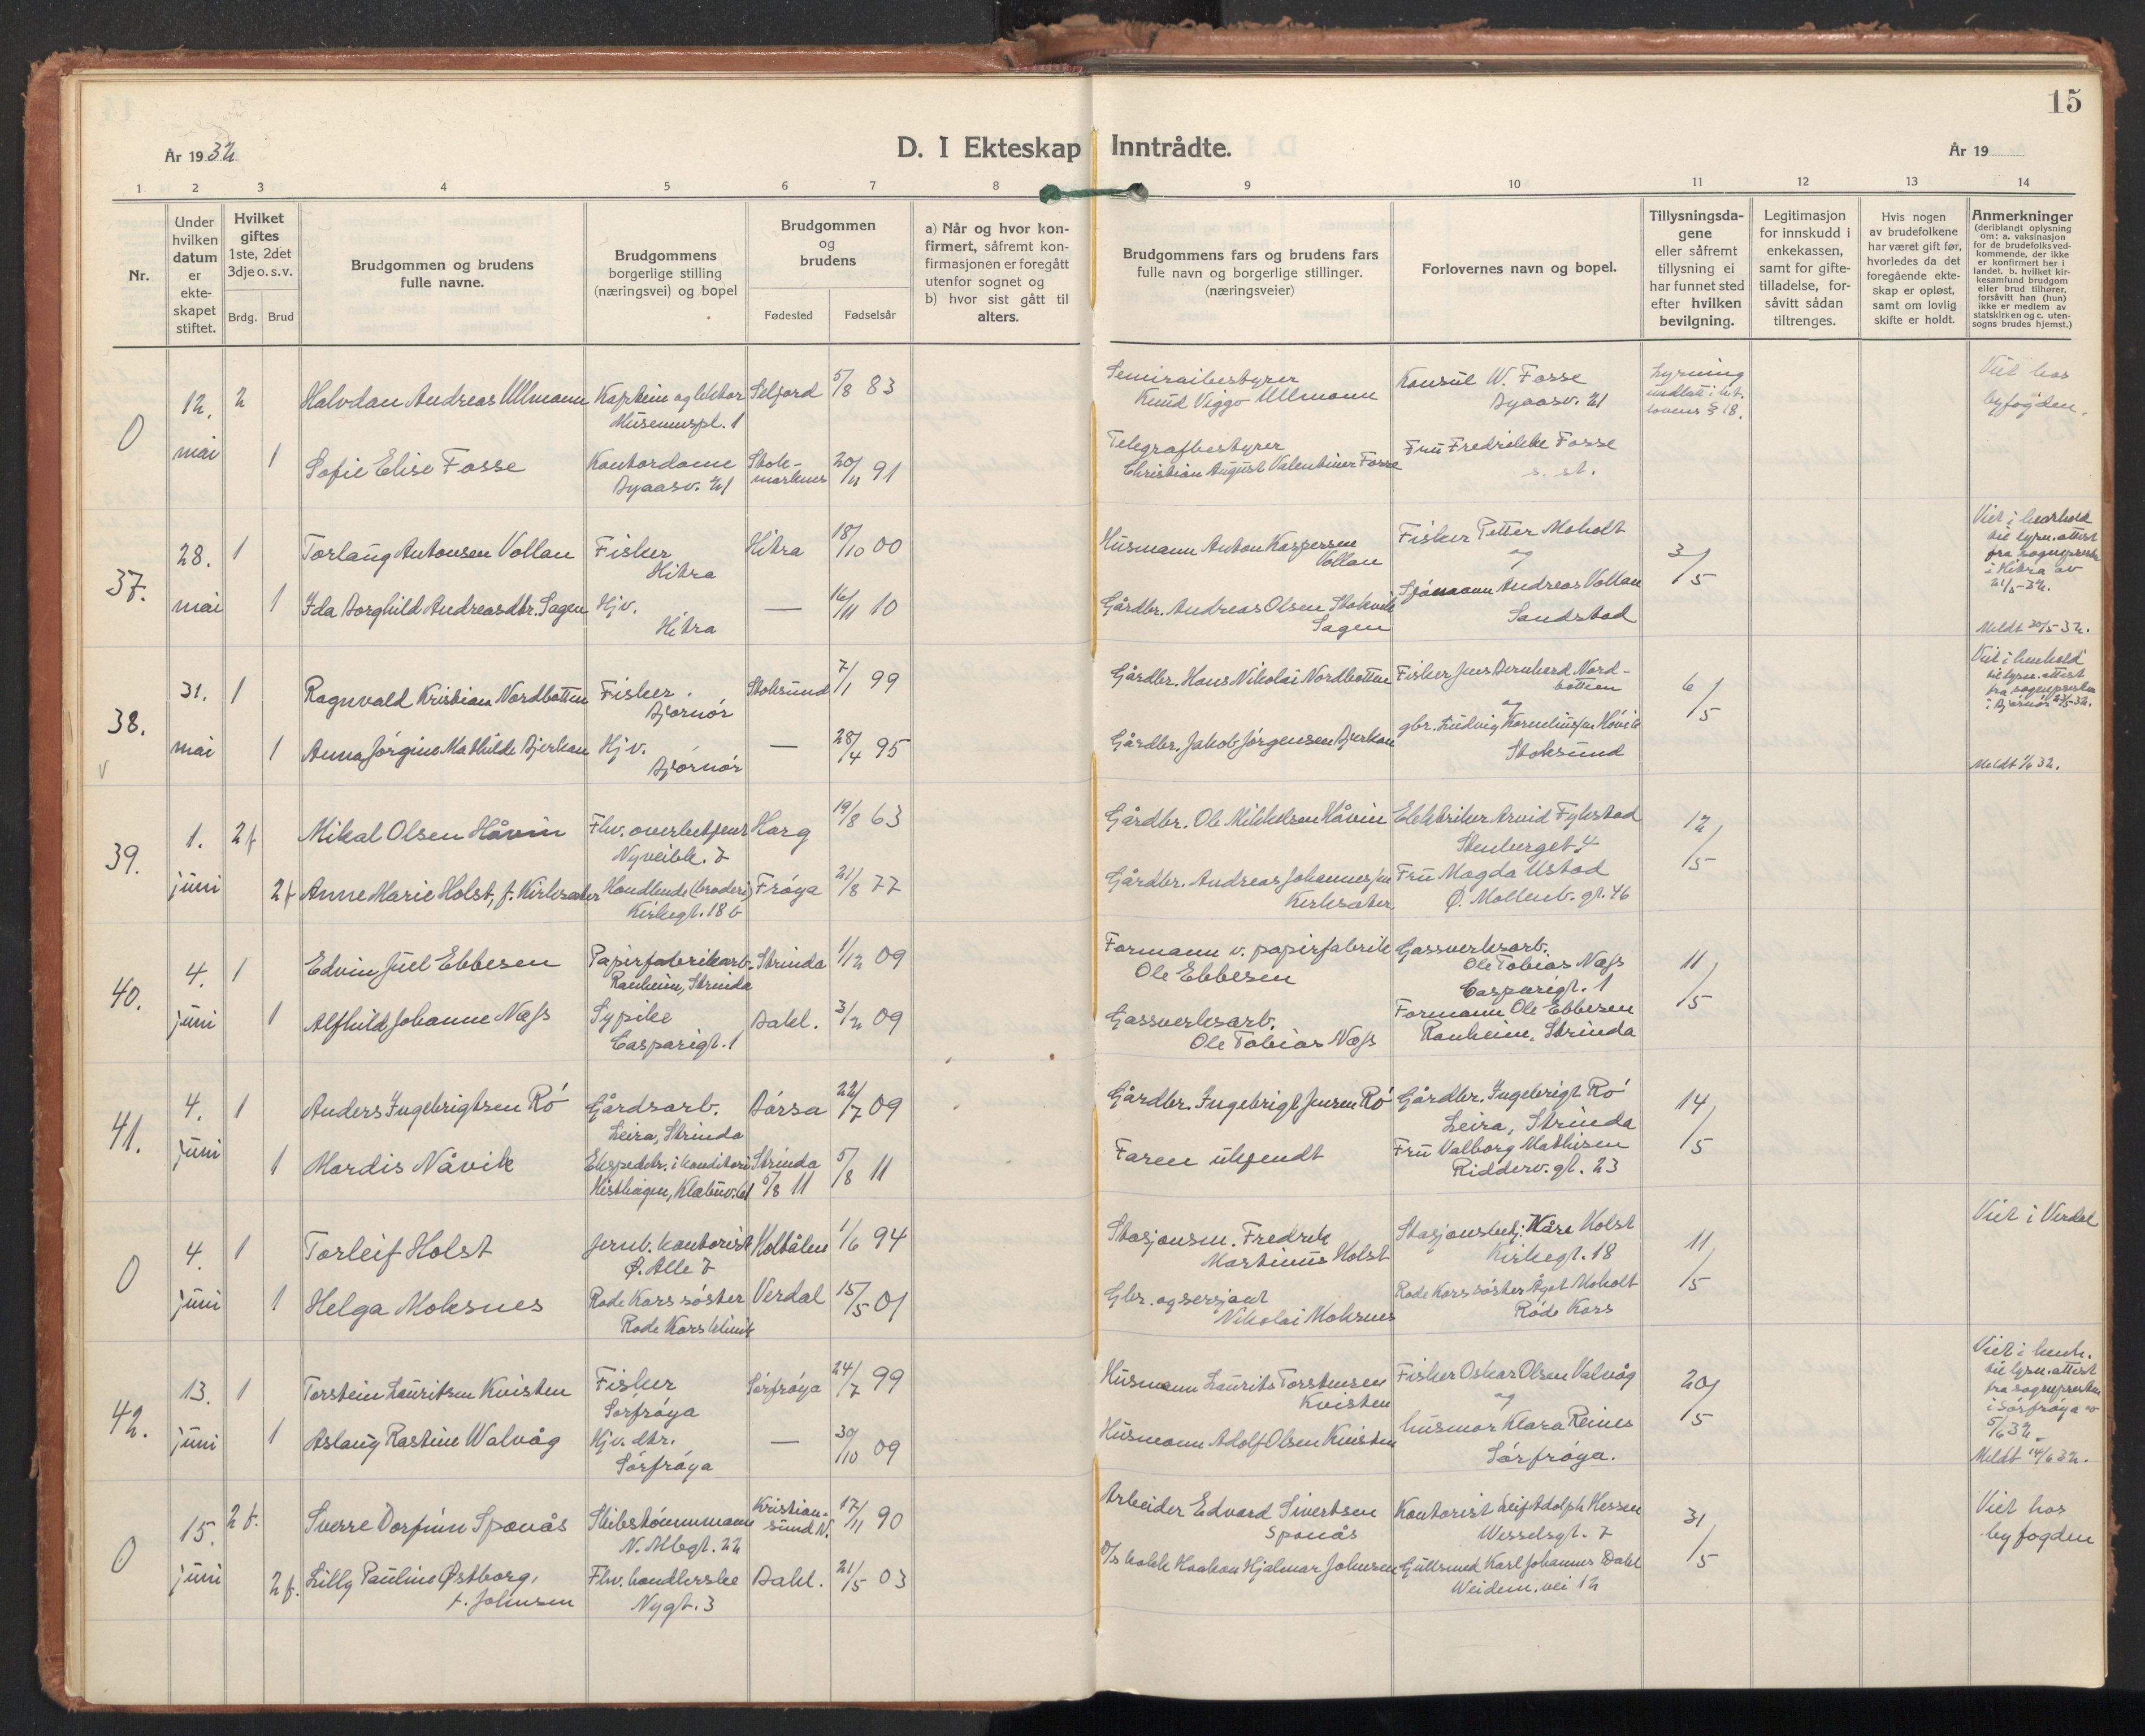 15
År 1932
D. I Ekteskap Inntrådte.
År 19
1 2 3 4 5 6 7 8 9 10 11 12 13 14
Nr.
Under hvilken datum er ekteskapet stiftet.
Hvilket giftes 1ste, 2det 3dje o. s. v.
Brdg. Brud
Brudgommen og brudens fulle navne.
Brudgommens borgerlige stilling (næringsvei) og bopel
Brudgommen og brudens
Fødested Fødselsår
a) Når og hvor konfirmert, såfremt konfirmasjonen er foregått utenfor sognet og
b) hvor sist gått til alters.
Brudgommens fars og brudens fars fulle navn og borgerlige stillinger. (næringsveier)
Forlovernes navn og bopel.
Tillysningsdagene eller såfremt tillysning ei har funnet sted efter hvilken bevilgning.
Legitimasjon for innskudd i enkekassen, samt for giftetilladelse, forsåvitt sådan tiltrenges.
Hvis nogen av brudefolkene har været gift før, hvorledes da det foregående ekteskap er opløst, samt om lovlig skifte er holdt.
Anmerkninger (deriblandt oplysning om: a. vaksinasjon for de brudefolks vedkommende, der ikke er konfirmert her i landet. b. hvilket kirkesamfund brudgom eller brud tilhører, forsåvitt han (hun) ikke er medlem av statskirken og c. utensogns brudes hjemst.)
0
12. mai
2 Halvdan Andreas Ullmann
Kaptein og lektor
Museumspl. 1
Seljord 5/8 83
Knud Viggo Ullmann
Konsul W. Fosse
Byaasv. 21
Viet hos
byfogden.
1 Sofie Elise Fosse
Kontordame
Byaasv. 21
Stokmarknes 91
Telegrafbestyrer
Christian August Valentiner Fosse
Fru Fredrikke Fosse
s. st.
37.
28. mai
1 Torlaug Antonsen Vollan
Fisker
Hitra
Hitra 18/10 00
Husmann Anton Kaspersen
Vollan
Fisker Petter Moholt
og
3/5
Viet i henhold
til lysn. attest
fra sognepresten
i Hitra av
21/5-32.
1 Ida Borghild Andreasdtr. Sagen
Hjv.
Hitra
— 16/11 10
Gårdbr. Andreas Olsen Stokvik
Sagen
Sjømann Andreas Vollan
Sandstad
Meldt 30/5-32.
38.
31. mai
1 Ragnvald Kristian Nordbotten
Fisker.
Bjørnør
Stoksund 7/1 99
Gårdbr. Hans Nikolai Nordbotten
Fisker Jens Bernhard Nordbotten
og
6/5
Viet i henhold
til lysn. attest
fra sognepresten
i Bjørnør 25/5-32.
1 Anna Jørgine Mathilde Bjerkan
Hjv.
Bjørnør
— 28/4 95
Gårdbr. Jakob Jørgensen Bjerkan
gbr. Ludvig Kornelius Høvik
Stoksund
Meldt 1/6 32.
39.
1. juni
2 f Mikal Olsen Håvin
Fhv. overbetjent
Nyveibk. 7
Horg 19/8 63
Gårdbr. Ole Mikkelsen Håvin
Elektriker Arvid Fykstad
Stenberget 4
12/5
2 f Anne Marie Holst, f. Kirksæter
Handlende (broderi)
Kirkegt. 18 b
Frøya 21/8 77
Gårdbr. Andreas Johannessen
Kirksæter
Fru Magda Ustad
Ø. Mollenb. gt. 46
40.
4. juni
1 Edvin Juel Ebbesen
Papirfabrikarb.
Ranheim, Strinda
Strinda 1/12 09
Formann v. papirfabrik
Ole Ebbesen
Gassverksarb.
Ole Tobias Næss
Casparigt. 1
11/5
1 Alfhild Johanne Næss
Sypike
Casparigt. 1
Bakl. 3/2 09
Gassverksarb.
Ole Tobias Næss
Formann Ole Ebbesen
Ranheim, Strinda
41.
4. juni
1 Anders Ingebrigtsen Rø
Gårdsarb.
Leira, Strinda
Børsa 22/7 09
Gårdbr. Ingebrigt Jensen Rø
Gårdbr. Ingebrigt Rø
Leira, Strinda
14/5
1 Mardis Nåvik
Ekspeditr. i konditori
Strinda 5/8 11
5/8 11
Faren ukjendt
Fru Valborg Mathisen
Ridderv. gt. 23
0
4. juni
1 Torleif Holst
Jernb. kontorist
Ø. Alle 7
Holtålen 1/6 94
Stasjonsm. Fredrik
Martinus Holst
Stasjonsbetj. Kåre Holst
Kirkegt. 18
11/5
Viet i Verdal
1 Helga Moksnes
Røde Kors søster
Røde Kors klinik
Verdal 15/5 01
Gbr. og sersjant
Nikolai Moksnes
Røde Kors søster Ågot Moholt
Røde Kors
42.
13. juni
1 Torstein Lauritsen Kvisten
Fisker
Sørfrøya
Sørfrøya 24/7 99
Husmann Laurits Torstensen
Kvisten
Fisker Oskar Olsen Valvåg
og
20/5
Viet i henh.
til lysn. attest
fra sognepresten
i Sørfrøya av
5/6 32.
1 Aslaug Rastine Walvåg
Hjv. dtr.
Sørfrøya
— 30/10 09
Husmann Adolf Olsen Kvisten
husmor Klara Reines
Sørfrøya.
Meldt 14/6 32.
0
15. juni
2 f. Sverre Dorfinn Sponås
Skibstømmermann
N. Mbgt. 22
Kristiansund N. 17/11 90
Arbeider Edvard Sivertsen
Sponås
Kontorist Leif Adolph Hessen
Wesselsgt. 7
31/5
Viet hos
byfogden
2 f. Lilly Pauline Østborg,
f. Johnsen
Fhv. handlerske
Nygt. 3
Bakl. 21/5 03
D/s kokk Haakon Hjalmar Johnsen
Gullsmed Karl Johannes Dahl
Weidem. vei 12